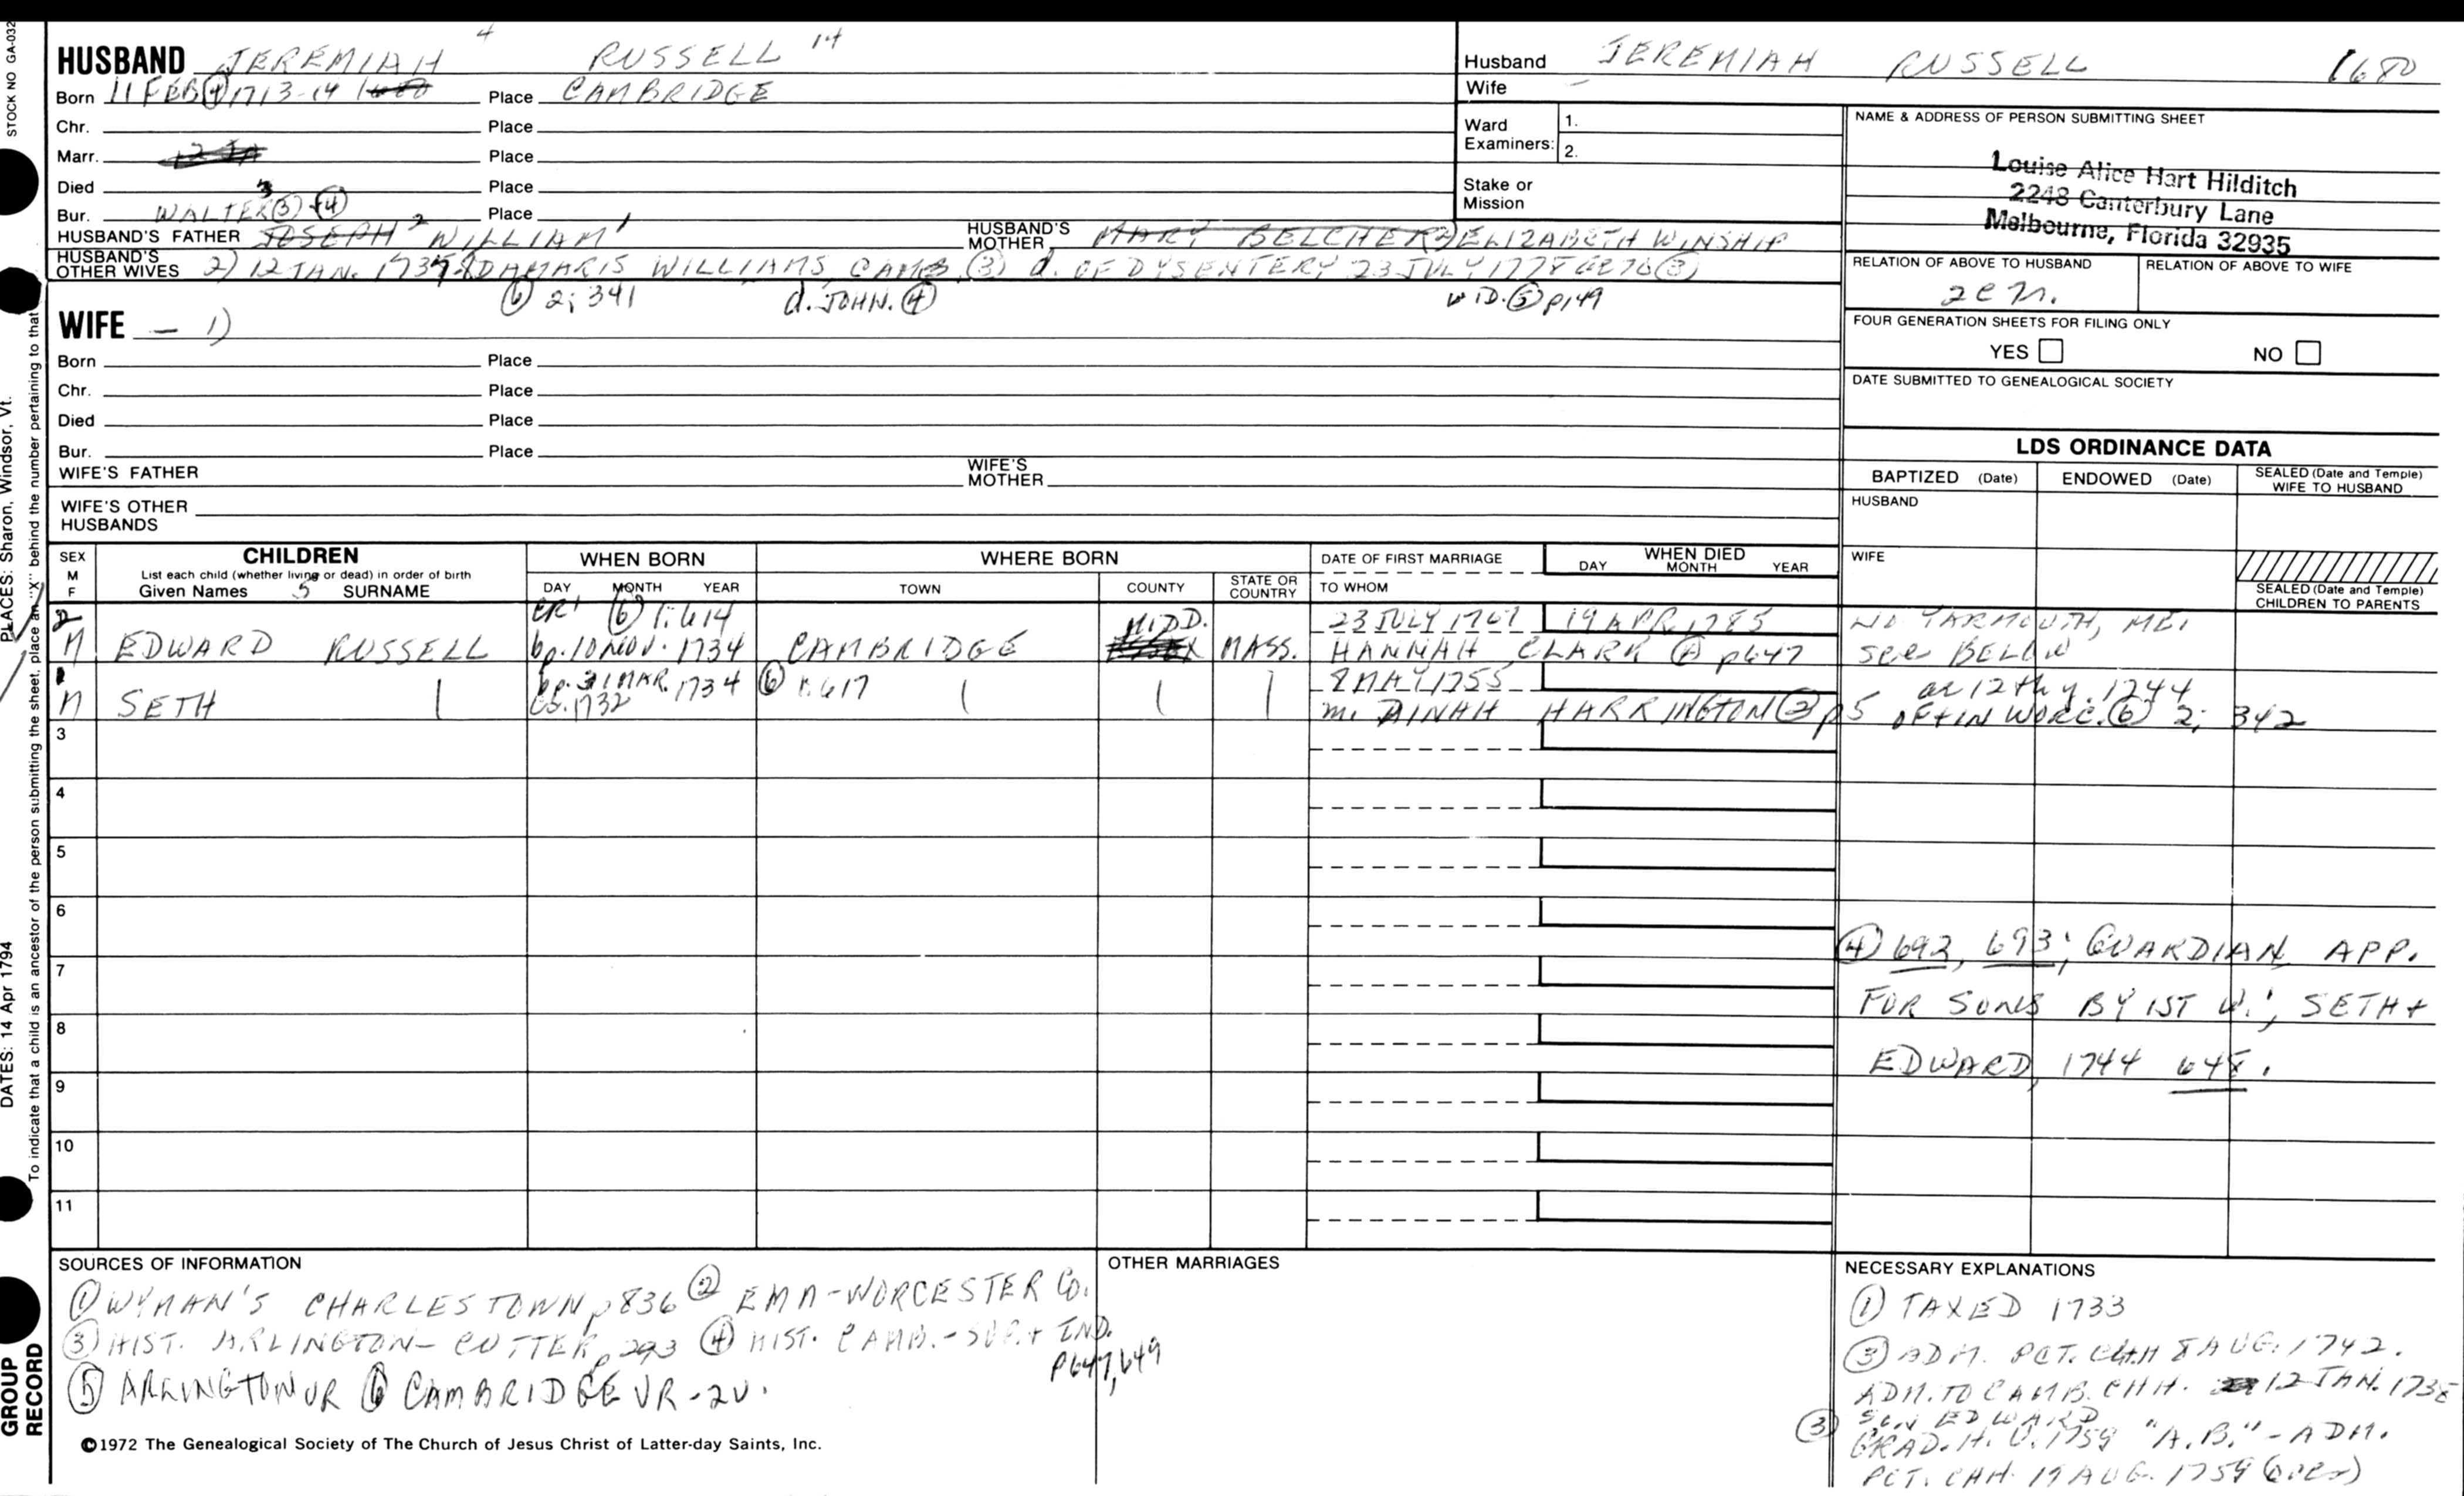 STOCK NO GA-032
HUSBAND JEREMIAH 4 RUSSELL 14
Born 11 FEB (4) 1713-14 1680 Place CAMBRIDGE
Chr. Place
Marr. 12 JA Place
Died Place
Bur. Place
WALTER 3 (3) + (4)
HUSBAND'S FATHER JOSEPH 2 WILLIAM 1 HUSBAND'S MOTHER MARY BELCHER ELIZABETH WINSHIP
HUSBAND'S OTHER WIVES 2) 12 JAN. DAMARIS WILLIAMS, CAMB. (3) d. OF DYSENTERY 23 JULY 1778 (3)
(6) 2; 341 d. JOHN. (4) WID. (5) p149
WIFE - 1)
Born Place
Chr. Place
Died Place
Bur. Place
WIFE'S FATHER WIFE'S MOTHER
WIFE'S OTHER HUSBANDS
Husband JEREMIAH RUSSELL 1680
Wife -
Ward Examiners: 1.
2.
Stake or Mission
NAME & ADDRESS OF PERSON SUBMITTING SHEET
Louise Alice Hart Hilditch
2248 Canterbury Lane
Melbourne, Florida 32935
RELATION OF ABOVE TO HUSBAND RELATION OF ABOVE TO WIFE
FOUR GENERATION SHEETS FOR FILING ONLY
YES NO
DATE SUBMITTED TO GENEALOGICAL SOCIETY
LDS ORDINANCE DATA
BAPTIZED (Date) ENDOWED (Date) SEALED (Date and Temple) WIFE TO HUSBAND
HUSBAND
WIFE
SEALED (Date and Temple) CHILDREN TO PARENTS
SEX M F CHILDREN WHEN BORN WHERE BORN DATE OF FIRST MARRIAGE WHEN DIED
List each child (whether living or dead) in order of birth DAY MONTH YEAR TOWN COUNTY STATE OR COUNTRY TO WHOM DAY MONTH YEAR
Given Names 5 SURNAME
2 CR1 (6) 1:614 MIDD. 23 JULY 19 APR 1785 NO YARMOUTH, ME.
M EDWARD RUSSELL bp. 10 NOV. 1734 CAMBRIDGE ESSEX MASS. HANNAH CLARK (4) p647 see BELOW
1 bp. 31 MAR. 1734 (6) 1:617 8 MAY 1755 ae 12th y. 1744
M SETH 1732 m. DINAH HARRINGTON (2) p5 OF + IN WORC. (6) 2; 342
3
4
5
6
7
8
9
10
11
(4) 692, 693; GUARDIAN APP.
FOR SONS BY 1ST W.; SETH +
EDWARD, 1744 648.
SOURCES OF INFORMATION
(1) WYMAN'S CHARLESTOWN p836 (2) EMA-WORCESTER Co.
(3) HIST. ARLINGTON-CUTTER p293 (4) HIST. CAMB.-SUP. + IND.
p647, 649
(5) ARLINGTON VR (6) CAMBRIDGE VR-2V.
©1972 The Genealogical Society of The Church of Jesus Christ of Latter-day Saints, Inc.
OTHER MARRIAGES
NECESSARY EXPLANATIONS
(1) TAXED 1733
(3) ADM. PCT. CHH 8 AUG. 1742.
ADM. TO CAMB. CHH. 12 JAN. 1735
SON EDWARD
(3) GRAD. H. U. 1759 "A.B."-ADM.
PCT. CHH. 19 AUG. 1759 (over)
PLACES: Sharon, Windsor, Vt.
DATES: 14 Apr 1794
To indicate that a child is an ancestor of the person submitting the sheet, place an "X" behind the number pertaining to that
GROUP RECORD